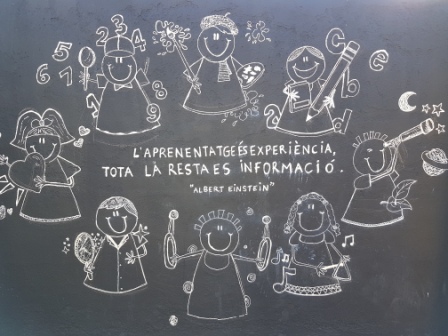 L'APRENENTATGE ÉS EXPERIÈNCIA,
TOTA LA RESTA ES INFORMACIÓ.
"ALBERT EINSTEIN"
5 6 1 2 3 4 7 8 9
e c b a d